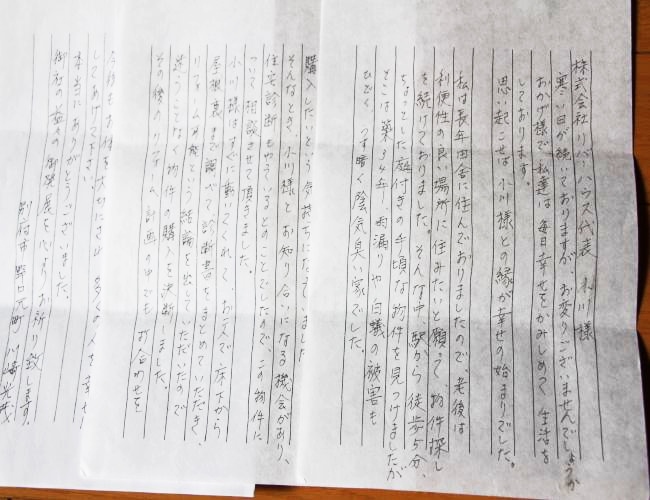 株式会社リバハウス代表 小川様
寒い日が続いておりますが、お変りございませんでしょうか
おかげ様で、私達は毎日幸せをかみしめて生活を
しております。
思い起こせば小川様との縁が幸せの始まりでした。
私は長年田舎に住んでおりましたので、老後は
利便性の良い場所に住みたいと願って、物件探し
を続けておりました。そんな中駅から徒歩5分、
ちょっとした庭付きの手頃な物件を見つけましたが
そこは築34年、雨漏りや白蟻の被害も
ひどく、うす暗く陰気臭い家でした。
購入したいという気持ちになってしました
そんなとき、小川様とお知り合いになる機会があり、
住宅診断もやているとのことでしたので、この物件に
ついて相談させて頂きました。
小川様はすぐに動いてくれて、お二人で床下から
屋根裏まで調べて診断書をまとめていただき、
リフォーム可能という結論を出していただいたので
迷うことなく物件の購入を決断しました。
その後のリフォーム計画の中でも お合わせを
今後もお体を大切にされ 多くの人を幸せに
してあげて下さい。
本当にありがとうございました。
御社の益々の御発展を心よりお祈り致します。
野口元町 川崎